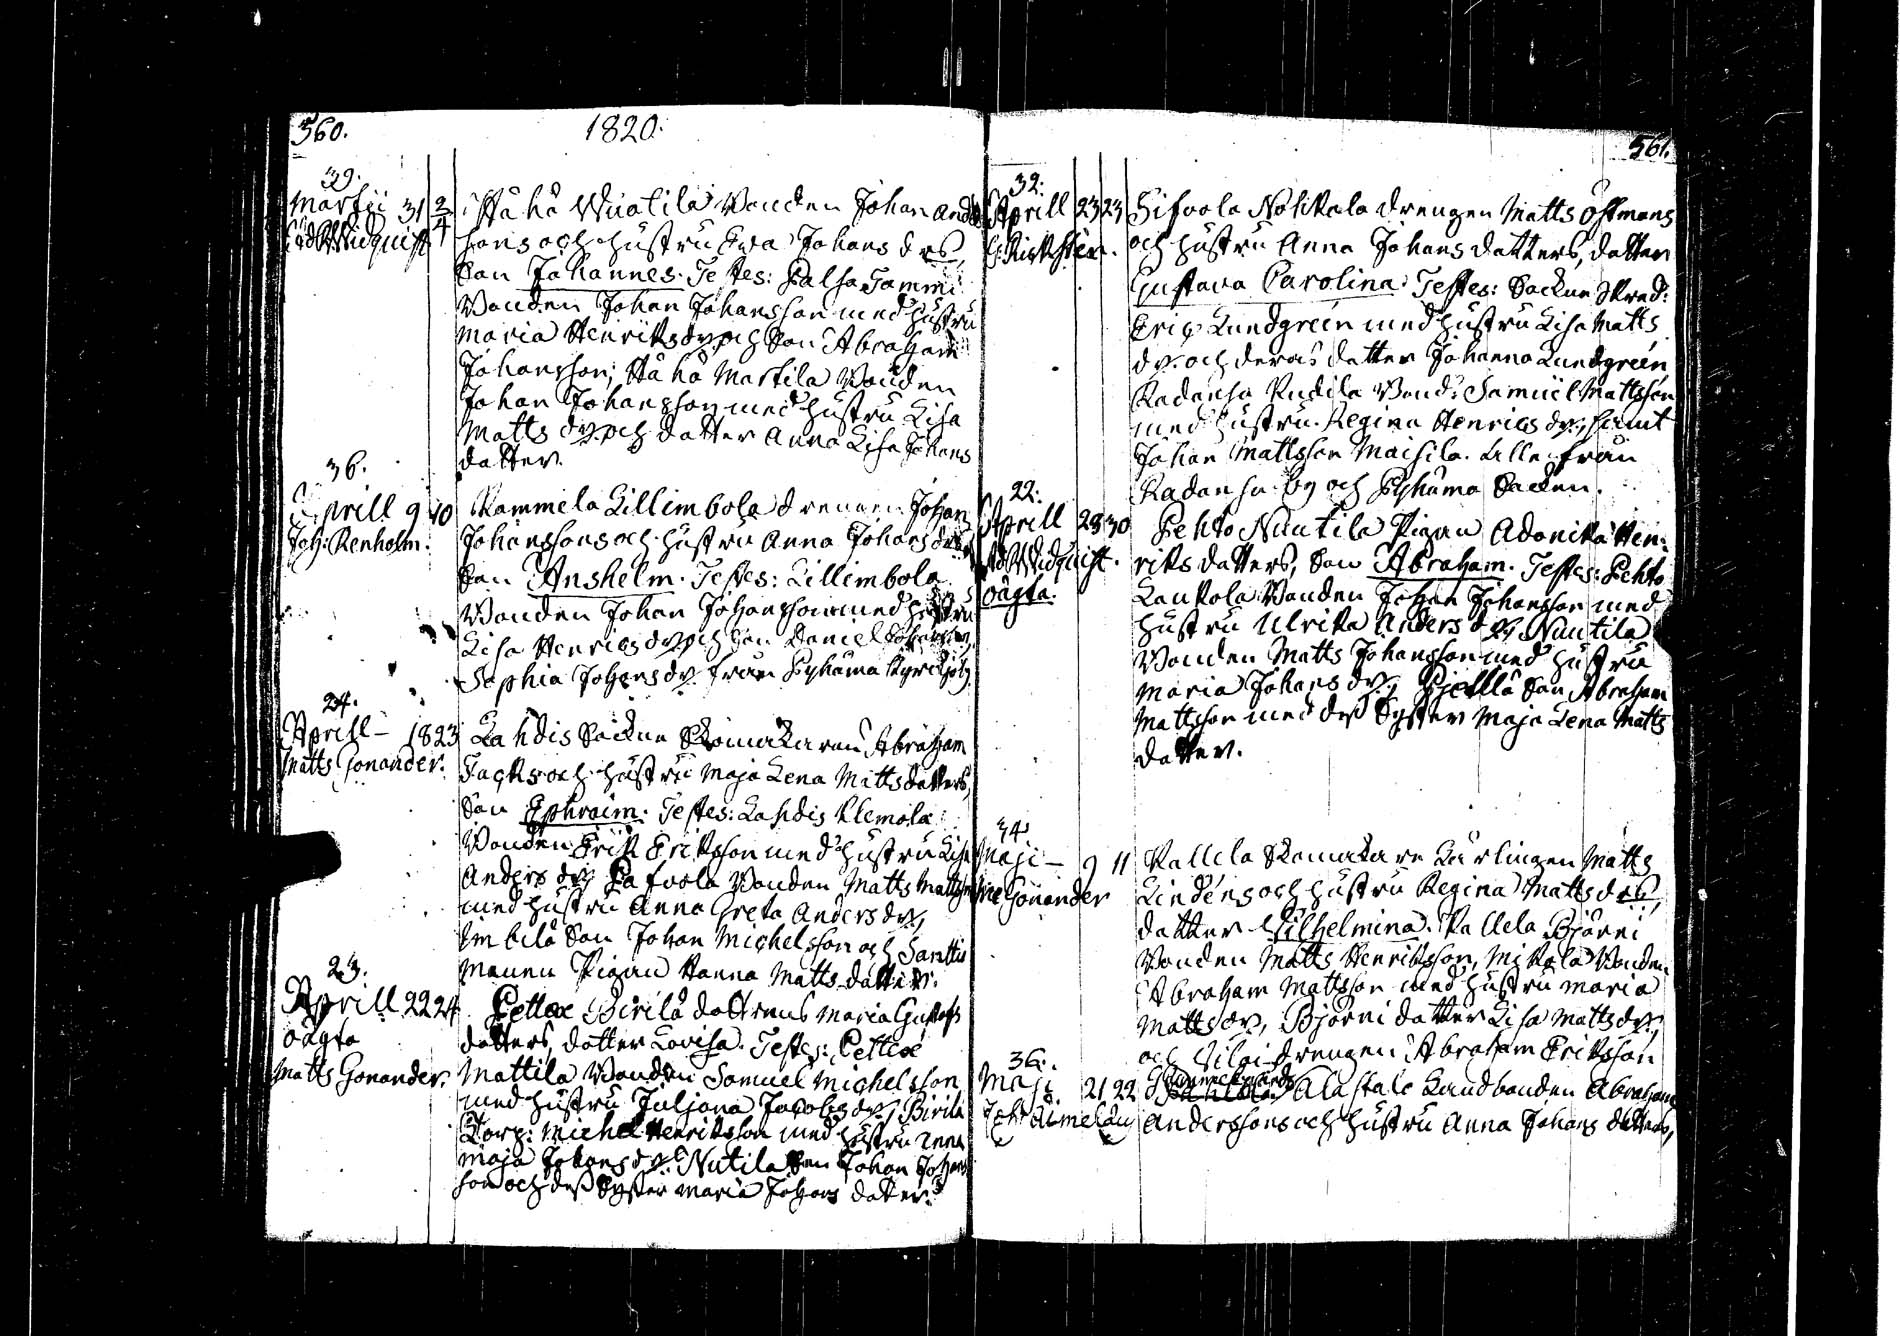 560.
1820.
39.
Martii 31 2/4
Widquist
Wuotila Bonden Johan Anders
sons och hustru Eva Johans drs,
Son Johannes. Testes: Falsa Tammi
Bonden Johan Johansson med hustru
Maria Henriksdr och Son Abraham
Johansson; Martila Bonden
Johan Johansson med hustru Lisa
Mattsdr och datter Anna Lisa Johans
datter.
36.
Aprill 9 10
Joh: Renholm.
Kammela Lillimbola drengen Johan
Johanssons och hustru Anna Johans drs
Son Anshelm. Testes: Lillimbola
Bonden Johan Johansson med hustru
Lisa Henricsdr och Son Daniel Johansson,
Sophia Johansdr från Pyhäma
24.
Aprill – 18 23
Matts Gonander.
Lahdis Sockne Skomakaren Abraham
Facks och hustru Maja Lena Mattsdatters,
Son Ephraim. Testes: Lahdis Klemola
Bonden Erik Eriksson med hustru Lisa
Anders dr, Bonden Matts Mattsson
med hustru Anna Greta Andersdr,
Son Johan Michelsson och Santtio
Pigan Hanna Matts datter.
23.
Aprill 22 24
oägta
Matts Gonander.
Pettæ Birilä dottrens Maria Gustafs
datters, datter Lovisa. Testes: Pettæ
Mattila Bonden Samuel Michelsson
med hustru Juljana Jacobsdr, Birila
Torp: Michel Henriksson med hustru Anna
Maja Johansdr Nutila Son Johan Johans
son och dess Syster Maria Johans datter.
561.
32.
Aprill 23 23
Sifvola Nohkala drengen Matts Östmans
och hustru Anna Johans datters, datter
Gustava Carolina. Testes: Sockne Skred:
Eric Lundgreen med hustru Lisa Matts
dr. och deras datter Johanna Lundgreen
Kadansu Bond: Samuel Mattsson
med hustru Regina Henricsdr, samt
Johan Mattsson Maisila. Alla från
Kadansu by och Pyhäma Socken.
22.
Aprill 28 30
Widquist.
oägta.
Pehto Nuutila Pigan Adonika Hen-
riks datters, Son Abraham. Testes: Pehto
Laukola Bonden Johan Johansson med
hustru Ulrika Andersdr, Nuutila
Bonden Matts Johansson med hustru
Maria Johans dr, Son Abraham
Mattsson med dess Syster Maja Lena Matts
datter.
34.
Maji – 9 11
Gonander
Kallela Skomakare Lärlingen Matts
Lindens och hustru Regina Matts drs,
datter Vilhelmina. Kallela Björni
Bonden Matts Henriksson, Mikola Bonden
Abraham Mattsson med hustru Maria
Mattsdr, Björni datter Lisa Mattsdr,
och drengen Abraham Eriksson
36.
Maji 21 22
Alastalo Landbonden Abraham
Anderssons och hustru Anna Johans datters,